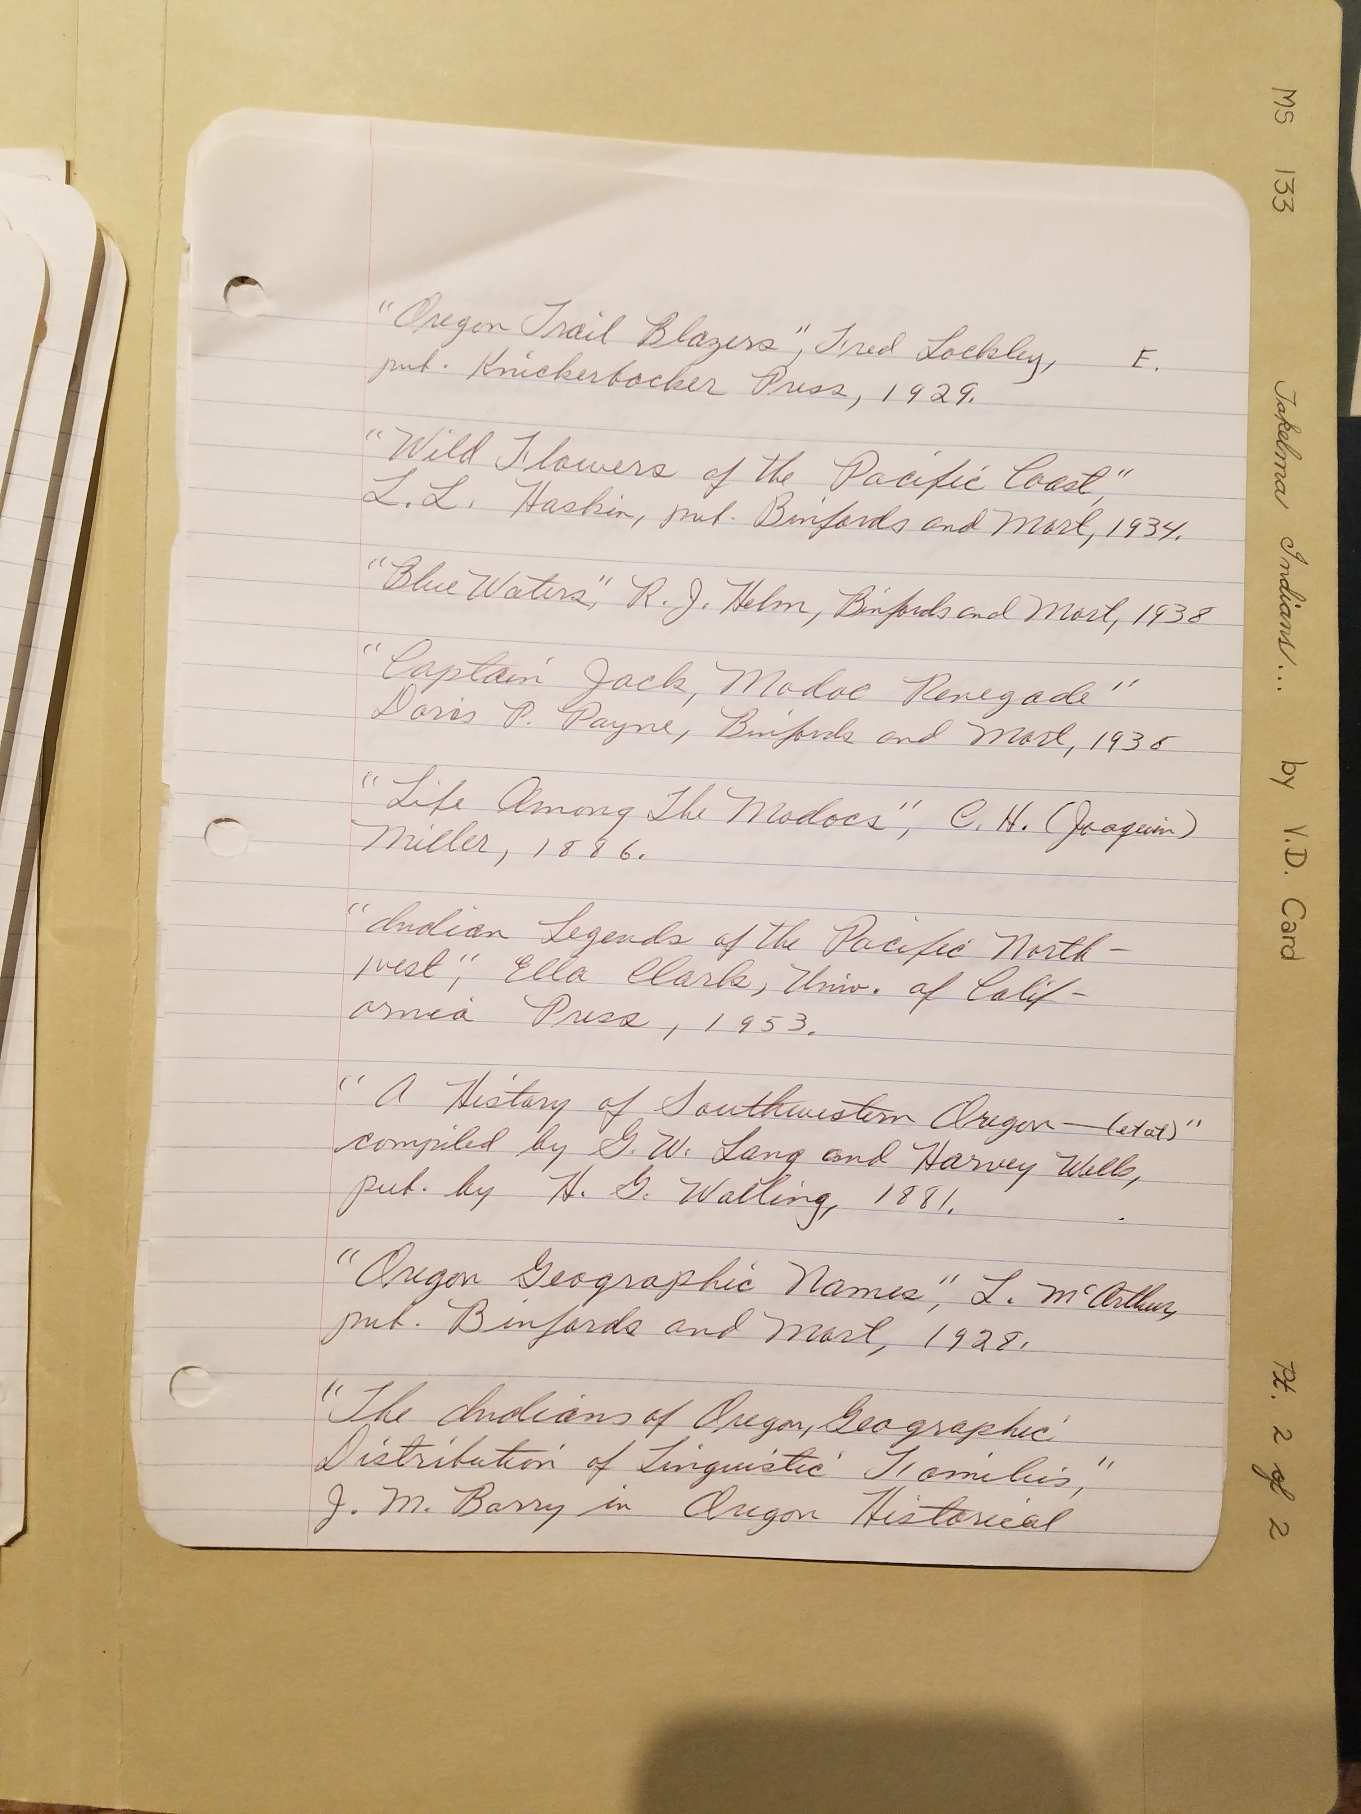 "Oregon Trail Blazers", Fred Lockley, E.
pub. Knickerbocker Press, 1929.
"Wild Flowers of the Pacific Coast,"
L.L. Haskin, pub. Binfords and Mort, 1934.
"Blue Waters," R. J. Helm, Binfords and Mort, 1938
"Captain Jack, Modoc Renegade"
Doris P. Payne, Binfords and Mort, 1938
"Life Among The Modocs", C. H. (Joaquin)
Miller, 1886.
"Indian Legends of the Pacific North-
west", Ella Clark, Univ. of Calif-
ornia Press, 1953.
"A History of Southwestern Oregon — (et al)"
compiled by G. W. Lang and Harvey Wells,
pub. by H. G. Walling, 1881.
"Oregon Geographic Names", L. McArthur,
pub. Binfords and Mort, 1928.
"The Indians of Oregon, Geographic
Distribution of Linguistic Families,"
J. M. Barry in Oregon Historical
MS 133 Takelma Indians... by V.D. Card Pt. 2 of 2